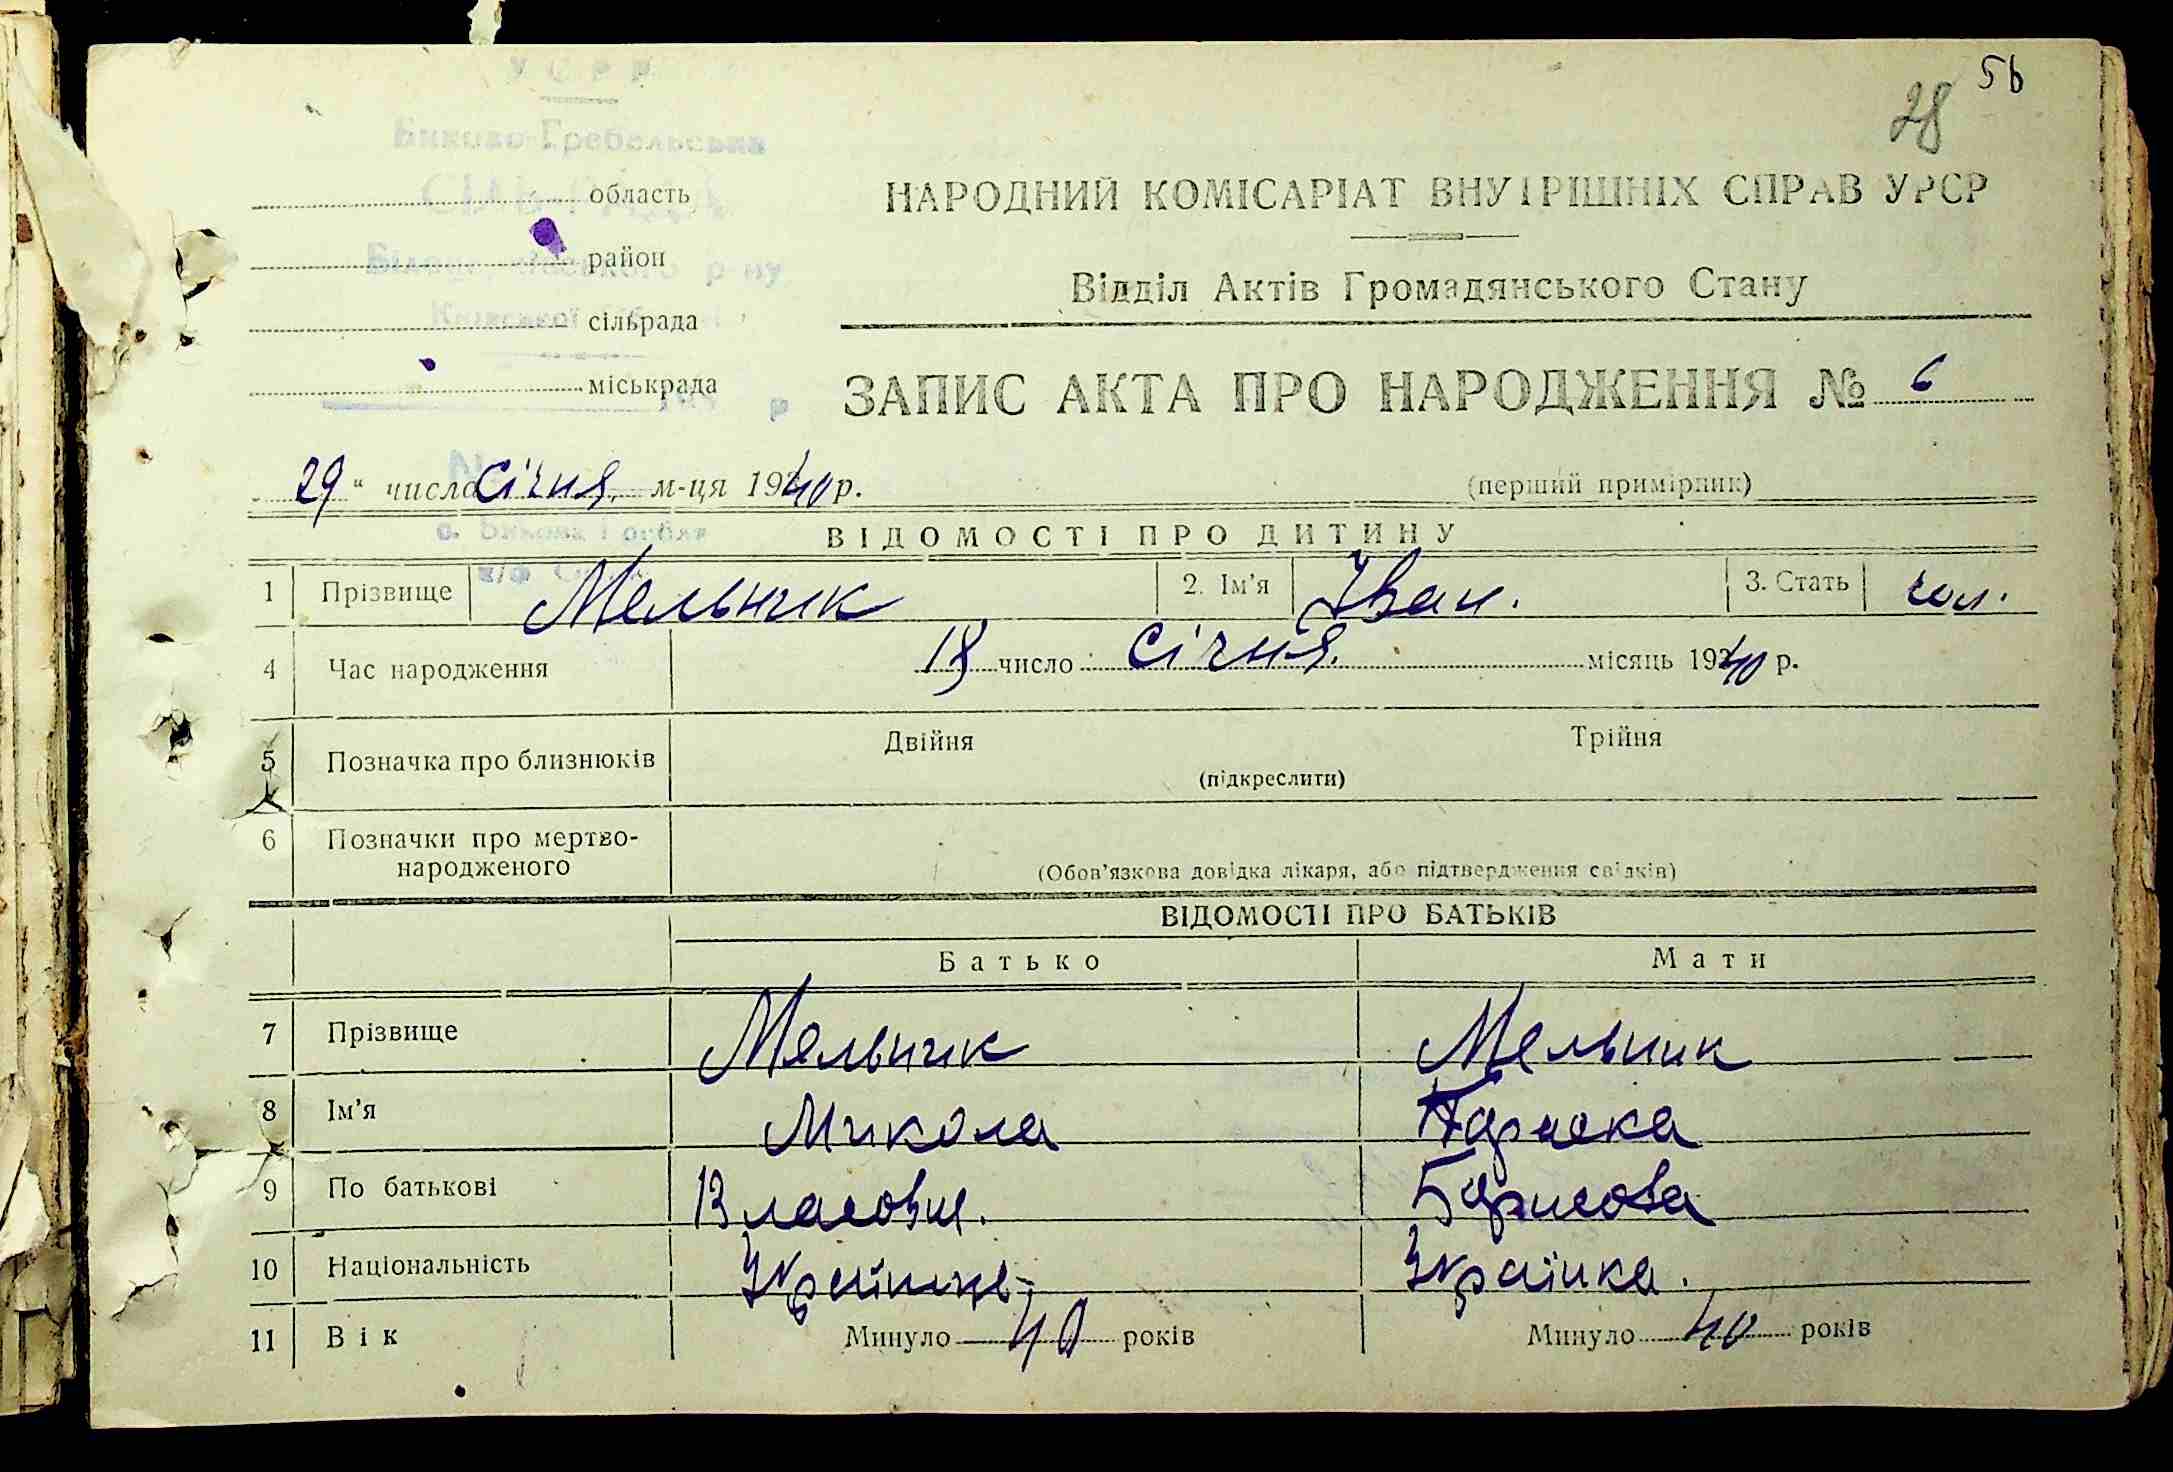 56
28
УСРР
Биково-Гребельська
область
НАРОДНИЙ КОМІСАРІАТ ВНУТРІШНІХ СПРАВ УРСР
район
р-ну
Відділ Актів Громадянського Стану
Київської
сільрада
міськрада
ЗАПИС АКТА ПРО НАРОДЖЕННЯ № 6
29 " число січня м-ця 1940 р.
(перший примірник)
ВІДОМОСТІ ПРО ДИТИНУ
1 Прізвище Мельник 2. Ім'я Іван. 3. Стать чол.
4 Час народження число січня місяць 1940 р.
5 Позначка про близнюків Двійня Трійня
(підкреслити)
6 Позначки про мертво-
народженого
(Обов'язкова довідка лікаря, або підтвердження свідків)
ВІДОМОСТІ ПРО БАТЬКІВ
Батько Мати
7 Прізвище Мельник Мельник
8 Ім'я Микола Параска
9 По батькові Власович. Борисова
10 Національність Українець Українка.
11 Вік Минуло 40 років Минуло 40 років